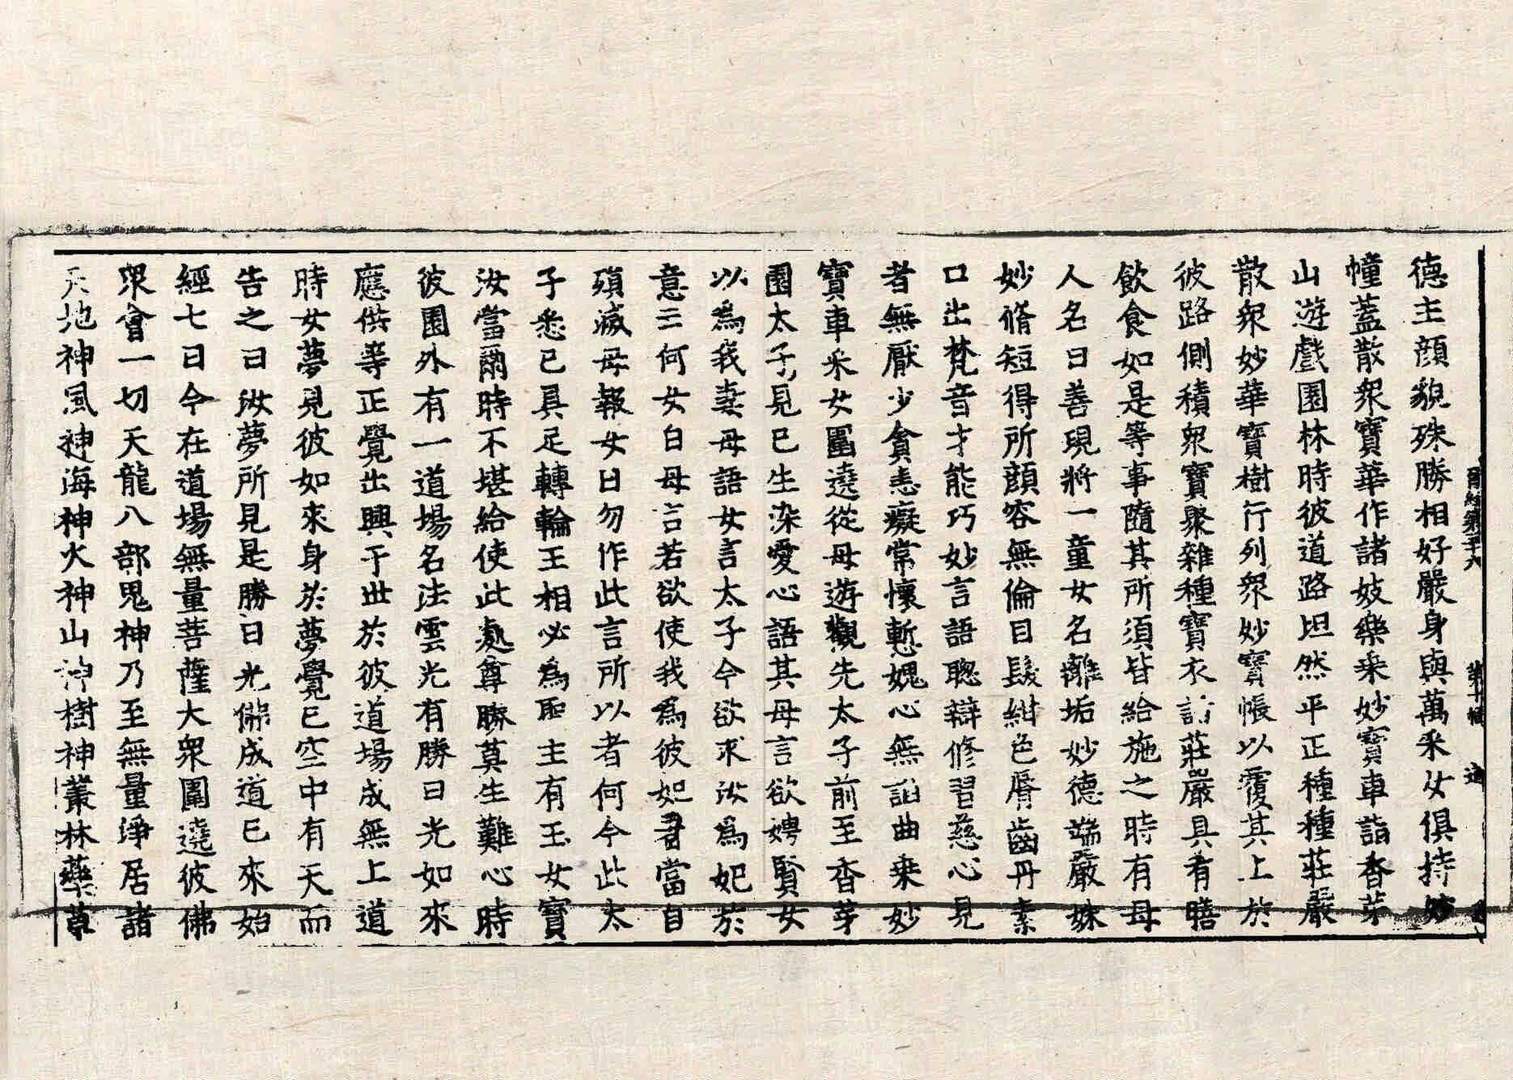 德主顔貌殊勝相好嚴身與萬采女俱持妙
幢蓋散衆寶華作諸妓樂乘妙寶車詣香芽
山遊戲園林時彼道路坦然平正種種莊嚴
散衆妙華寶樹行列衆妙寶帳以覆其上於
彼路側積衆寶聚雜種寶衣莊嚴具有膳
飲食如是等事隨其所須皆給施之時有母
人名曰善現將一童女名離垢妙德端嚴姝
妙脩短得所顔容無倫目髮紺色脣齒丹素
口出梵音才能巧妙言語聰辯修習慈心見
者無厭少貪恚癡常懷慙媿心無諂曲乘妙
寶車采女圍遶從母遊觀先太子前至香芽
園太子見已生染愛心語其母言欲娉賢女
以爲我妻母語女言太子今欲求汝爲妃於
意云何女白母言若欲使我爲彼妃者當自
殞滅母報女曰勿作此言所以者何今此太
子悉已具足轉輪王相必爲聖主有玉女寶
汝當爾時不堪給使此處尊勝莫生難心時
彼園外有一道場名法雲光有勝日光如來
應供等正覺出興于世於彼道場成無上道
時女夢見彼如來身於夢覺已空中有天而
告之曰汝夢所見是勝日光佛成道已來始
經七日今在道場無量菩薩大衆圍遶彼佛
衆會一切天龍八部鬼神乃至無量淨居諸
天地神風神海神火神山神樹神叢林藥草